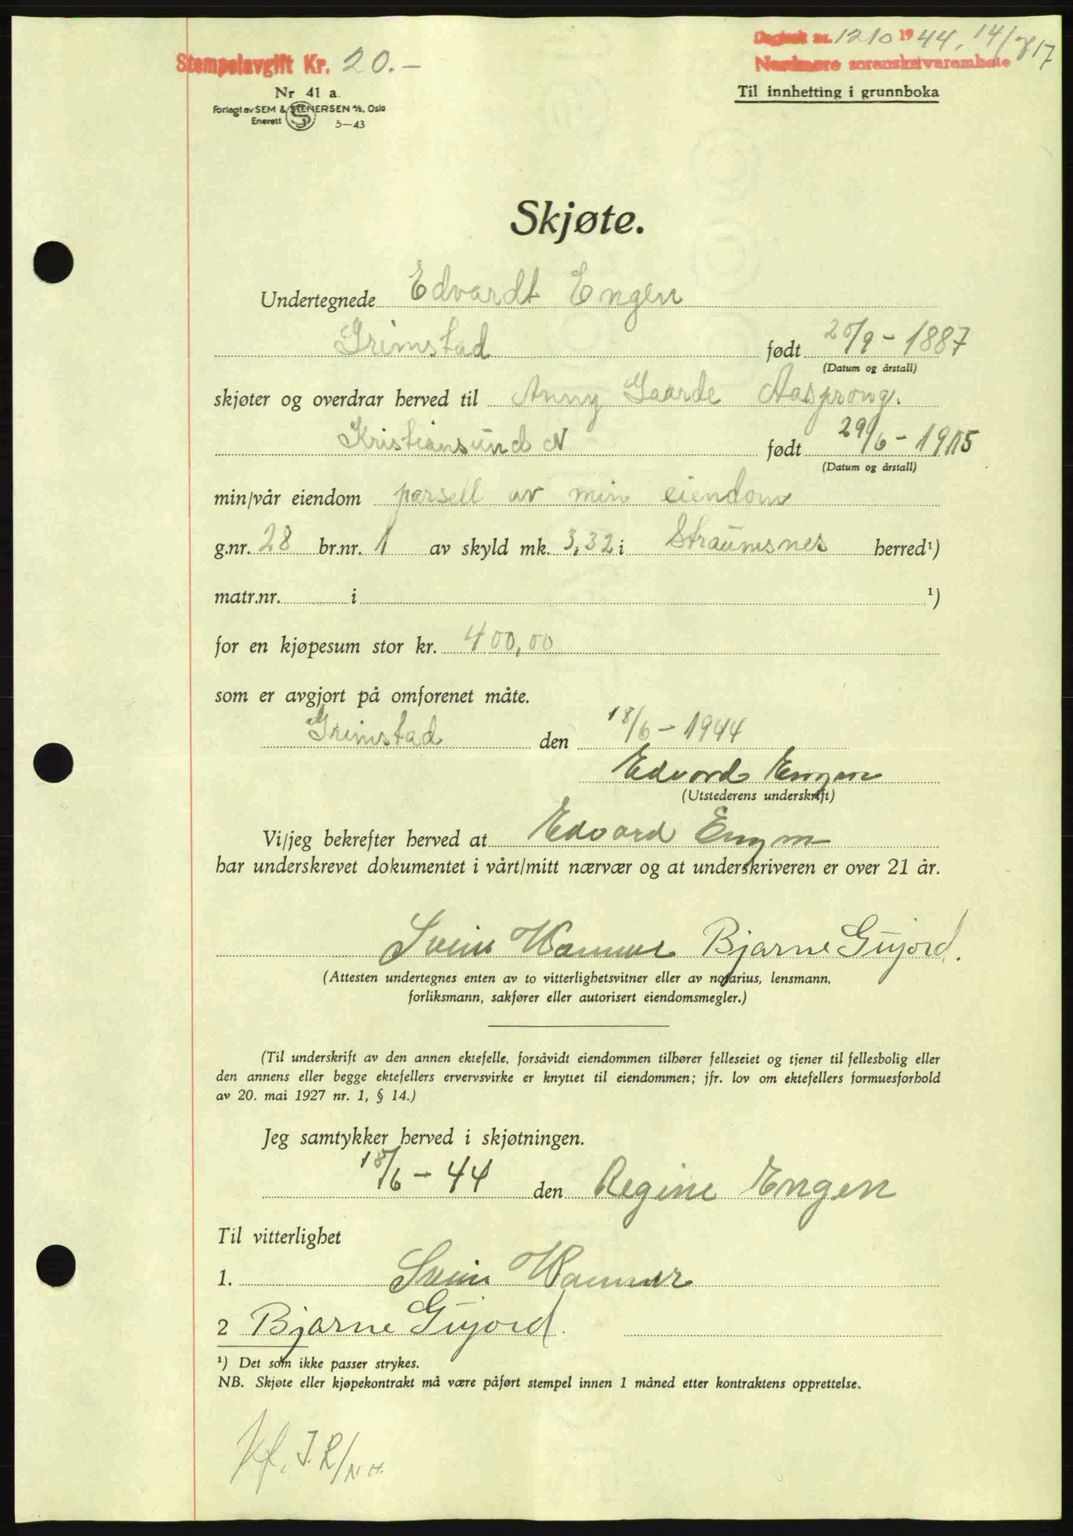 Stempelavgift Kr. 20.-
Nr 41 a.
Forlagt av SEM & STENERSEN A/S, Oslo
Enerett 5-43
Dagbok nr. 1210 1944, 14/7
Nordmøre sorenskriverembete
Til innhefting i grunnboka
Skjøte.
Undertegnede Edvardt Engen
Grimstad født 20/9 - 1887
(Datum og årstall)
skjøter og overdrar herved til Anny Gaarde Aasprong.
Kristiansund N født 29/6 - 1905
(Datum og årstall)
min/vår eiendom parsell av min eiendom
g.nr. 28 br.nr. 1 av skyld mk. 3,32 i Straumsnes herred¹)
matr.nr. i ¹)
for en kjøpesum stor kr. 400,00
som er avgjort på omforenet måte.
Grimstad den 18/6 - 1944
Edvard Engen
(Utstederens underskrift)
Vi/jeg bekrefter herved at Edvard Engen
har underskrevet dokumentet i vårt/mitt nærvær og at underskriveren er over 21 år.
Svein Hammer Bjarne Gujord.
(Attesten undertegnes enten av to vitterlighetsvitner eller av notarius, lensmann,
forliksmann, sakfører eller autorisert eiendomsmegler.)
(Til underskrift av den annen ektefelle, forsåvidt eiendommen tilhører felleseiet og tjener til fellesbolig eller
den annens eller begge ektefellers ervervsvirke er knyttet til eiendommen; jfr. lov om ektefellers formuesforhold
av 20. mai 1927 nr. 1, § 14.)
Jeg samtykker herved i skjøtningen.
18/6 - 44 den Regine Engen
Til vitterlighet
1. Svein Hammer
2 Bjarne Gujord.
¹) Det som ikke passer strykes.
NB. Skjøte eller kjøpekontrakt må være påført stempel innen 1 måned etter kontraktens opprettelse.